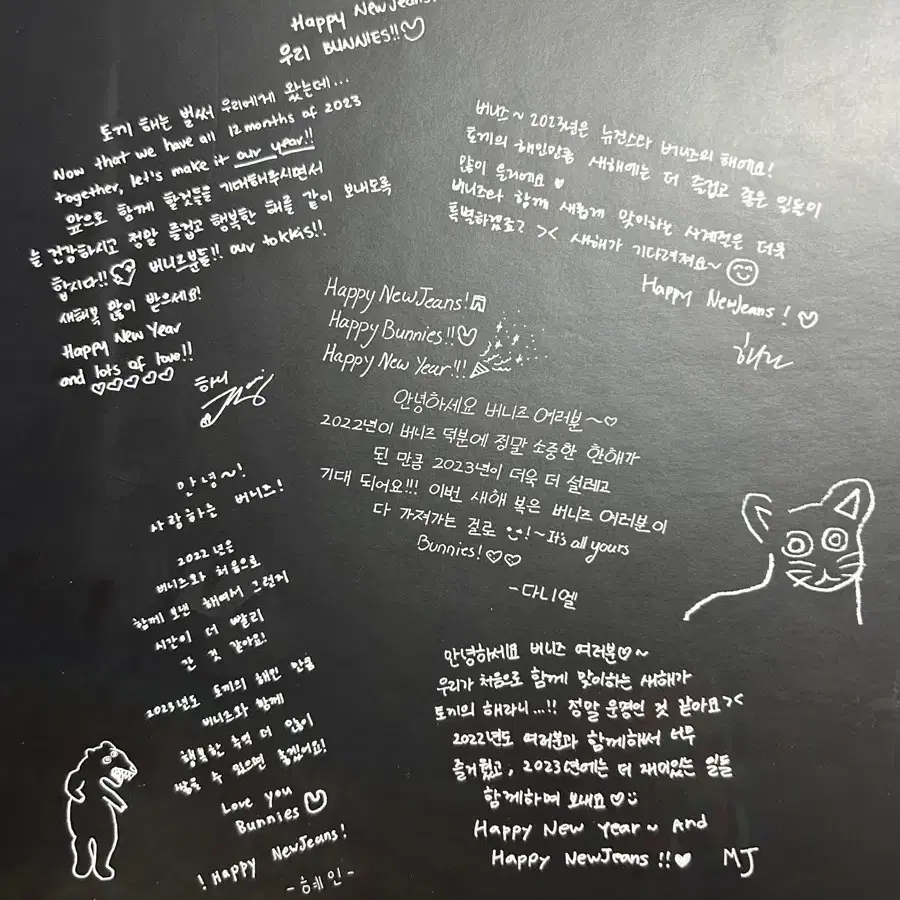 Happy NewJeans!
우리 BUNNIES!!♡
토끼 해는 벌써 우리에게 왔는데...
Now that we have all 12 months of 2023
together, let's make it our year!!
앞으로 함께 할것들을 기대해주시면서
늘 건강하시고 정말 즐겁고 행복한 해를 같이 보내도록
합시다!!♡ 버니즈분들!! our tokkis!!
새해복 많이 받으세요!
Happy New Year
and lots of love!!
♡♡♡♡♡
하니
버니즈~ 2023년은 뉴진스랑 버니즈의 해예요!
토끼의 해인만큼 새해에는 더 즐겁고 좋은 일들이
많이 올거예요 ♥
버니즈와 함께 새롭게 맞이하는 사계절은 더욱
특별하겠죠? >< 새해가 기다려져요~ ☺
Happy NewJeans! ♡
해린
Happy NewJeans!
Happy Bunnies!!♡
Happy New Year!!!
안녕하세요 버니즈 여러분~♡
2022년이 버니즈 덕분에 정말 소중한 한해가
된 만큼 2023년이 더욱 더 설레고
기대 되어요!!! 이번 새해 복은 버니즈 여러분이
다 가져가는 걸로 :)!~It's all yours
Bunnies!♡♡
-다니엘
안녕~!
사랑하는 버니즈!
2022년은
버니즈와 처음으로
함께 보낸 해여서 그런지
시간이 더 빨리
간 것 같아요!
2023년도 토끼의 해인 만큼
버니즈와 함께
행복한 추억 더 많이
쌓을 수 있으면 좋겠어요!
Love you
Bunnies ♡
! Happy NewJeans!
-혜인-
안녕하세요 버니즈 여러분♡~
우리가 처음으로 함께 맞이하는 새해가
토끼의 해라니...!! 정말 운명인 것 같아요><
2022년도 여러분과 함께해서 너무
즐거웠고, 2023년에는 더 재미있는 일들
함께하며 보내요♡:)
Happy New Year~ And
Happy NewJeans!!♥ MJ